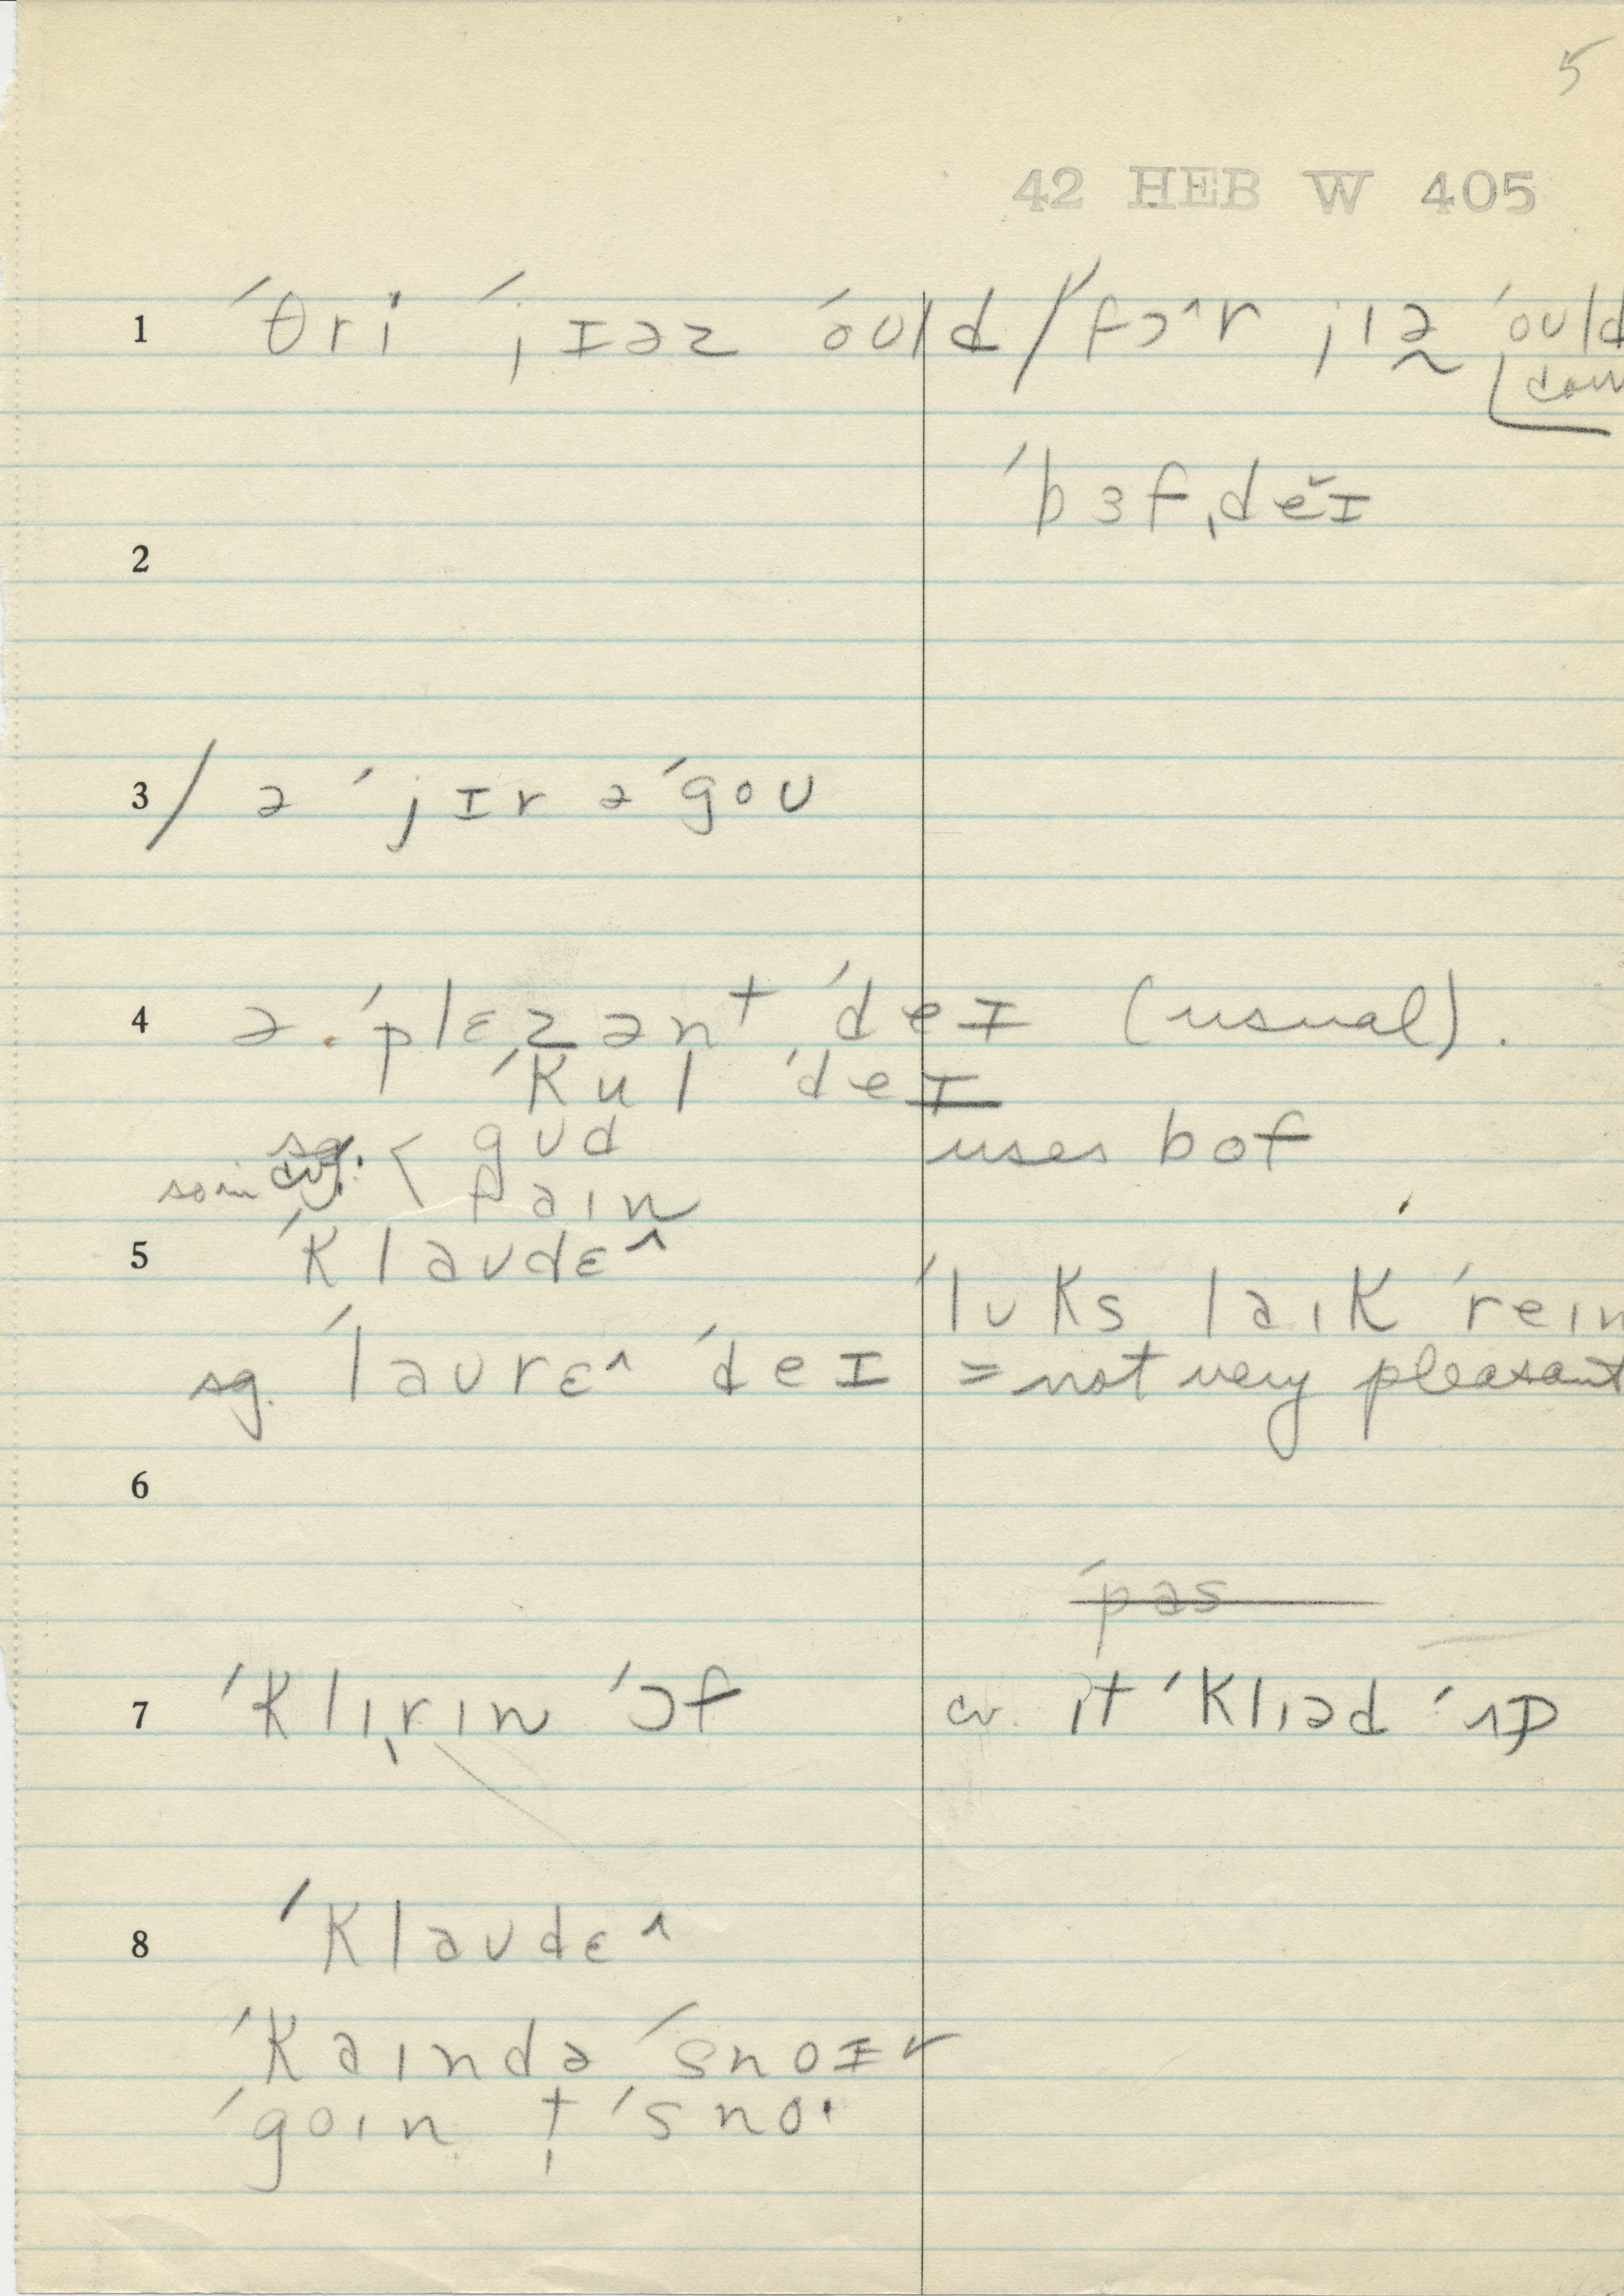 5
42 HEB W 405
1 ˈθri ˈjɪəz ˈoʊld / ˈfɔ^r jıə̰ ˈoʊld
ˈbɜfˌdĕɪ
2
3 / ə ˈjɪr əˈgoʊ
4 ə ˈplɛzənt ˈdeɪ (usual).
ˈkul ˈdeɪ
sg. < gʊd uses bof
faın
5 ˈklaʊdɛ^
ˈlʊks laık ˈreın
sg. ˈlaʊrɛ^ ˈdeɪ = not very pleasant
6
ˈpas
7 ˈklıˌrın ˈɔf cv. ıt ˈklıəd ˈʌp
8 ˈklaʊdɛ^
ˈkaında ˈsnoɪr
ˈgoın t̩ ˈsno·